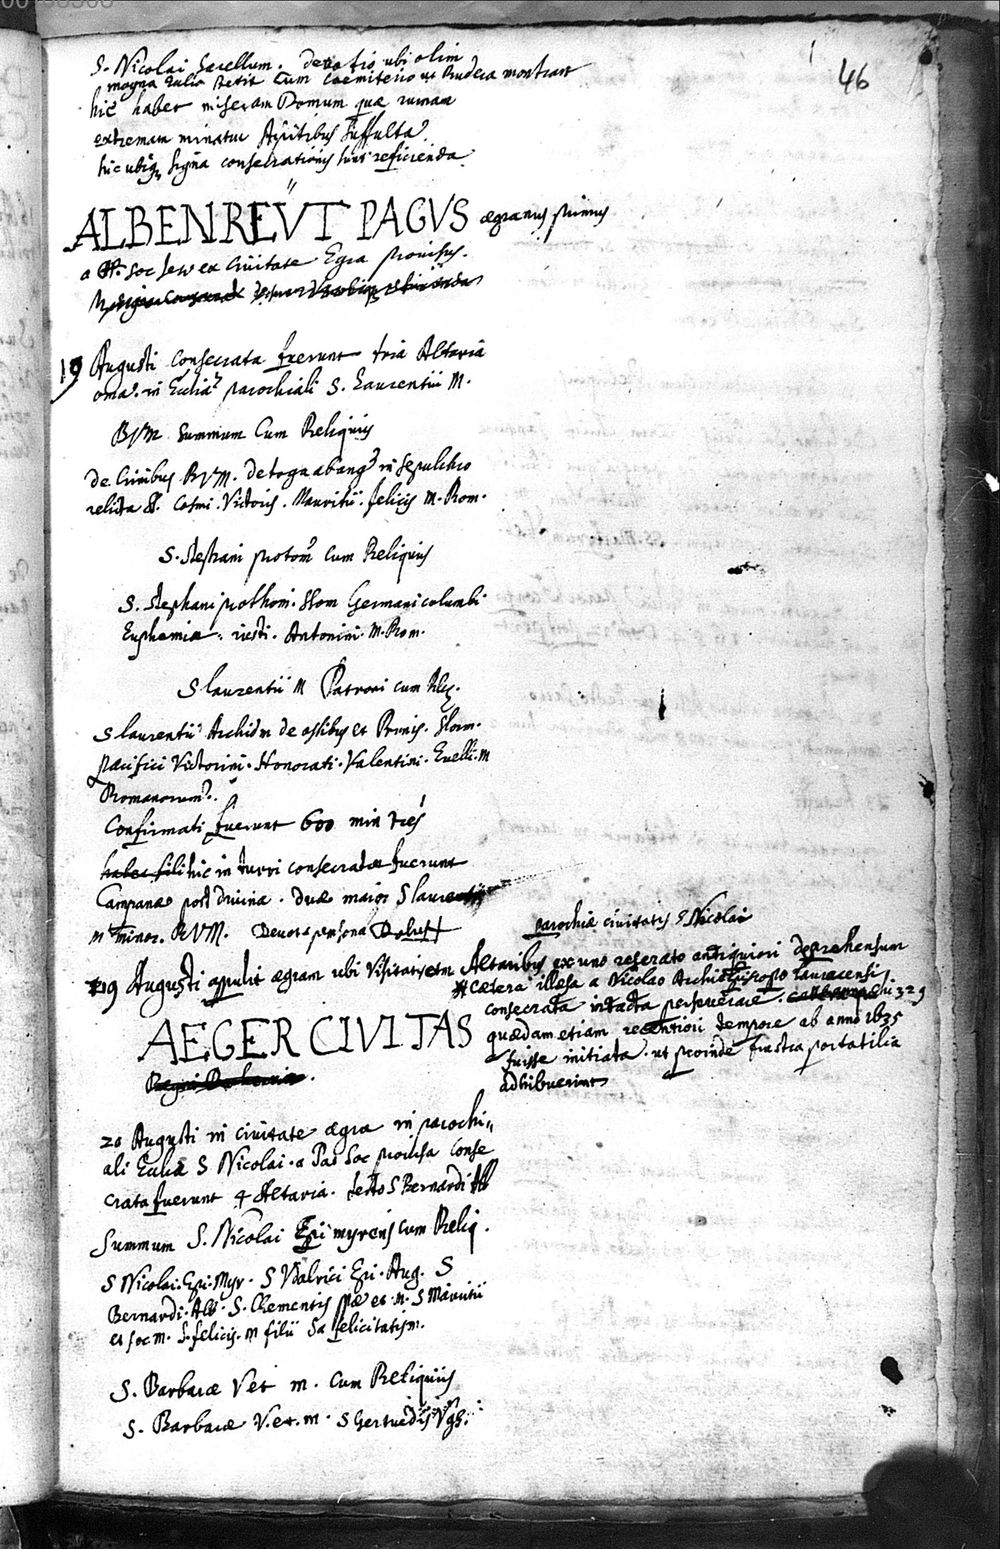 46
S. Nicolai Sacellum. devotio ubi olim
magna stetit cum Caemiterio ut Rudera monstrant
hic habet miseram Domum quae ruinam
extremam minatur stipitibus suffulta.
hic ubiq signa consecrationis sunt reficienda.
ALBENREÜT PAGVS aegranus primus
a Soc Jesu ex Civitate Egra provisus.
19 Augusti Consecrata fuerunt tria Altaria
oma. in Ecclia parochiali S. Laurentii M.
BVM Summum Cum Reliquiis
de Crinibus BVM. de toga ab ang in sepulchro
relicta SS. Cosmi. Victoris. Mauritii. felicis M. Rom.
S. Stephani protom Cum Reliquiis
S. Stephani prothom. Germani columbi
Euphemiae. iusti. Antonini. M. Rom.
S laurentii M Patroni cum Reliq.
S laurentii Archid M de ossibus et Prunis.
pacifici Victorini. Honorati. Valentini. M
Romanorum.
Confirmati fuerunt 600 min tres
hic in turri consecratae fuerunt
Campanae post divina. duae maior S laurentii
M minor. BVM. Devota persona
parochia civitatis S Nicolai
19 Augusti appuli aegram ubi Visitatis Altaribus ex uno reserato antiquiori deprehensum
caetera illesa a Nicolao Archiepiscopo lauracensi
consecrata intacta perseverare. 1329
quaedam etiam recentiori tempore ab anno 1635
fuisse initiata. ut proinde frustra portatilia
adhibuerint
AEGER CIVITAS
20 Augusti in civitate aegra in parochi„
ali Ecclia S Nicolai. a Soc provisa Conse
crata fuerunt 4 Altaria. festo S Bernardi Abb
Summum S. Nicolai Epi myrens cum Reliq.
S Nicolai. Epi. Myr. S Vdalrici Epi. Aug. S
Bernardi. Abb. S. Clementis ppae et M. S Mauritii
et soc M. S. felicis. M filii Sa felicitatis M.
S. Barbarae V et M. Cum Reliquiis
S. Barbarae V. et. M. S Gertrudis Vgs.